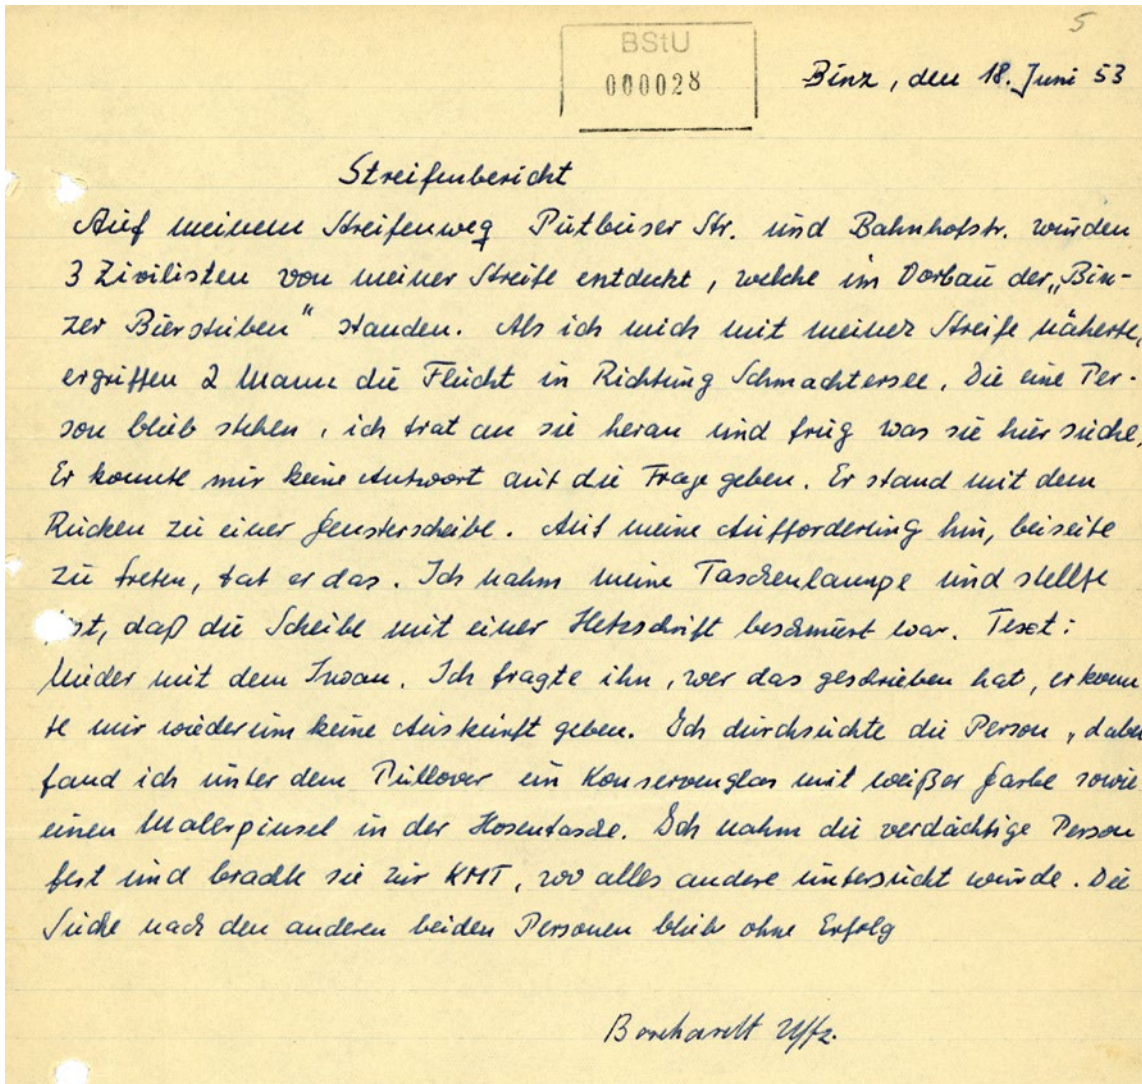 5
BStU
000028
Binz, den 18. Juni 53
Streifenbericht
Auf meinem Streifenweg Putbuser Str. und Bahnhofstr. wurden
3 Zivilisten von meiner Streife entdeckt, welche im Vorbau der „Bin-
zer Bierstuben" standen. Als ich mich mit meiner Streife näherte,
ergriffen 2 Mann die Flucht in Richtung Schmachtersee. Die eine Per-
son blieb stehen, ich trat an sie heran und frug was sie hier suche,
Er konnte mir keine Antwort auf die Frage geben. Er stand mit dem
Rücken zu einer Fensterscheibe. Auf meine Aufforderung hin, beiseite
zu treten, tat er das. Ich nahm meine Taschenlampe und stellte
st, daß die Scheibe mit einer Hetzschrift beschmiert war. Text:
Nieder mit dem Iwan. Ich fragte ihn, wer das geschrieben hat, er konn
te mir wiederum keine Auskunft geben. Ich durchsuchte die Person, dabei
fand ich unter dem Pullover ein Konservenglas mit weißer Farbe sowie
einen Malerpinsel in der Hosentasche. Ich nahm die verdächtige Person
fest und brachte sie zur KMT, wo alles andere untersucht wurde. Die
Suche nach den anderen beiden Personen blieb ohne Erfolg
Borchardt Uffz.